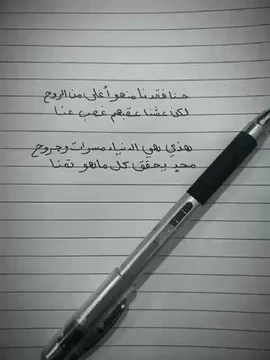 حنا فقدنا منهو أغلى من الروح
لكن عشنا عقبهم غصب عنا
هذي هي الدنيا مسرات وجروح
محدٍ يحقق كل ماهو تمنا